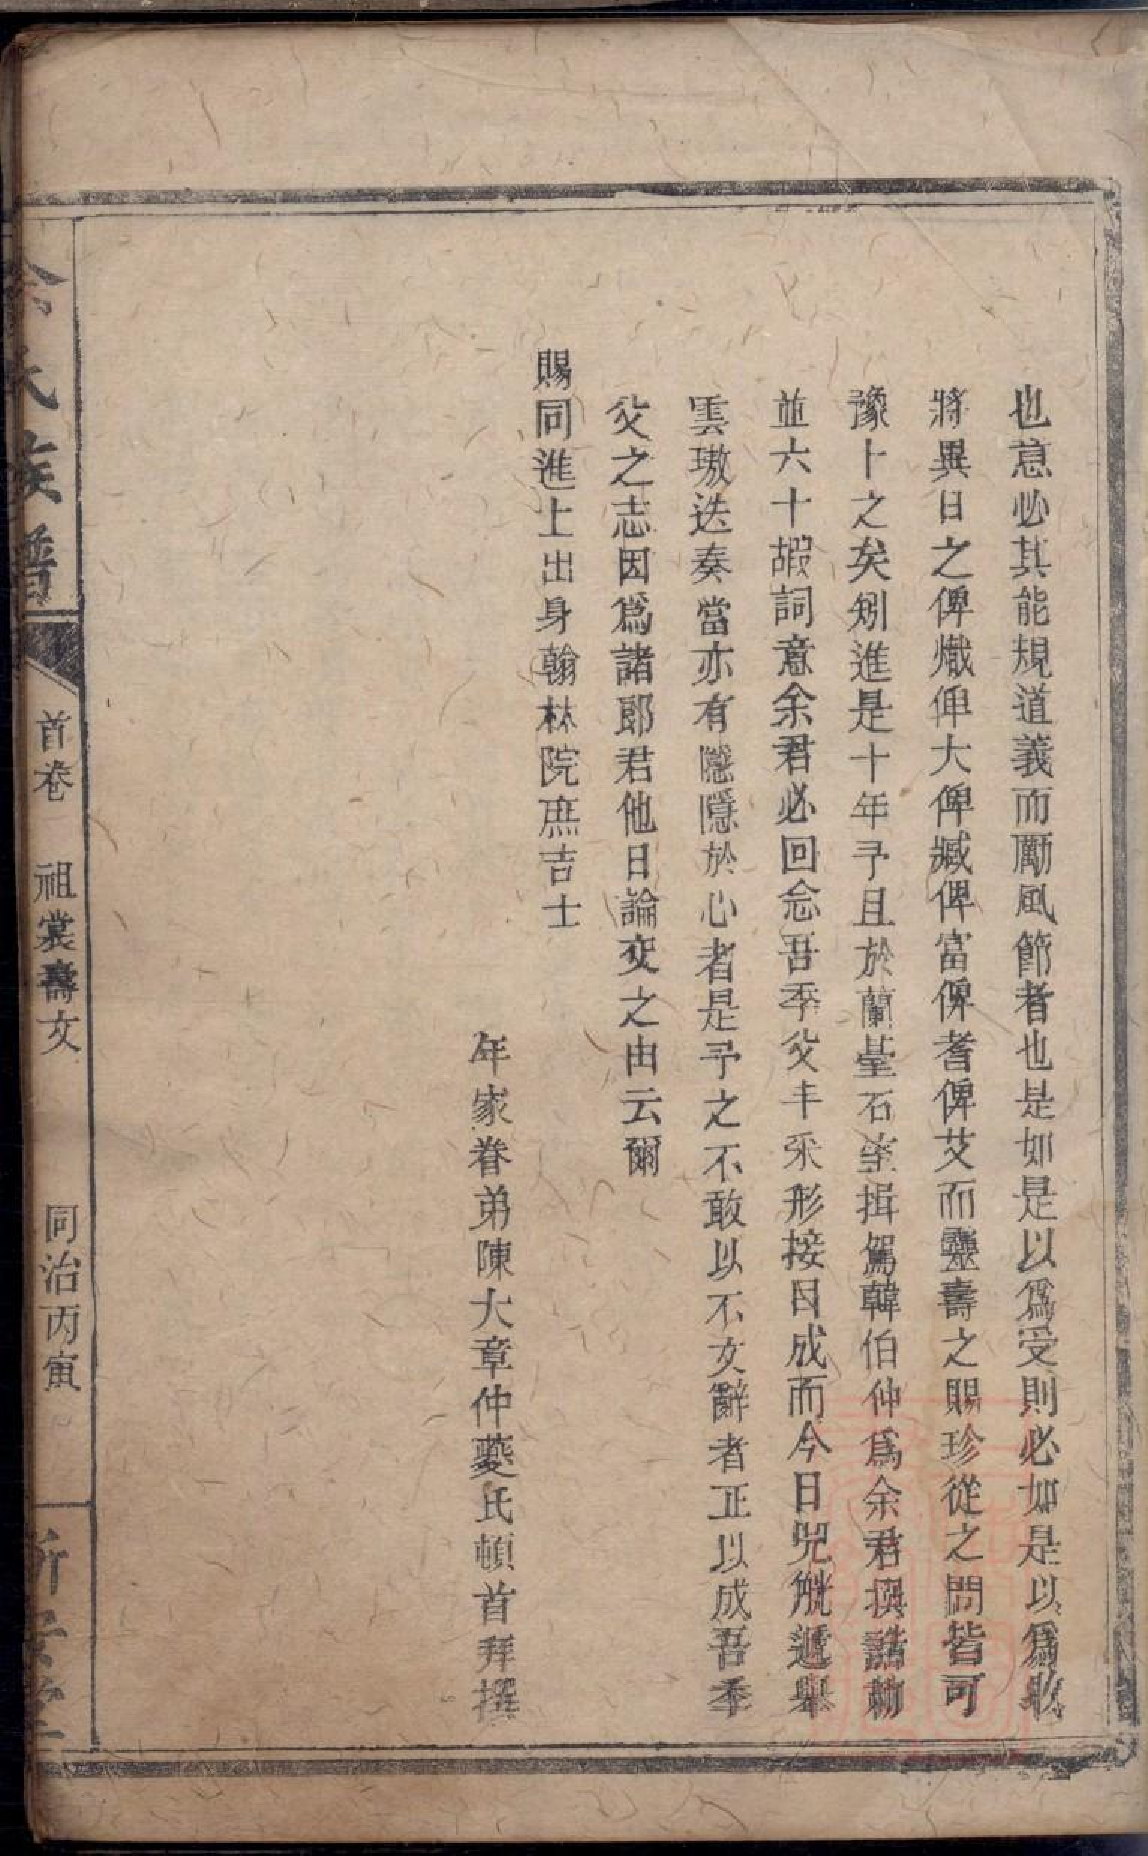 也意必其能規道義而勵風節者也是如是以爲受則必如是以爲收
將異日之俾熾俾大俾臧俾富俾耆俾艾而靈壽之賜珍從之問皆可
豫卜之矣矧進是十年予且於蘭臺石室揖駕韓伯仲爲余君撰誥勅
並六十嘏詞意余君必回念吾季父丰采形接日成而今日兕觥遞舉
雲璈迭奏當亦有隱隱於心者是予之不敢以不文辭者正以成吾季
父之志因爲諸郎君他日論交之由云爾
賜同進士出身翰林院庶吉士
年家眷弟陳大章仲夔氏頓首拜撰
余氏族譜
首卷 祖裳壽文
同治丙寅